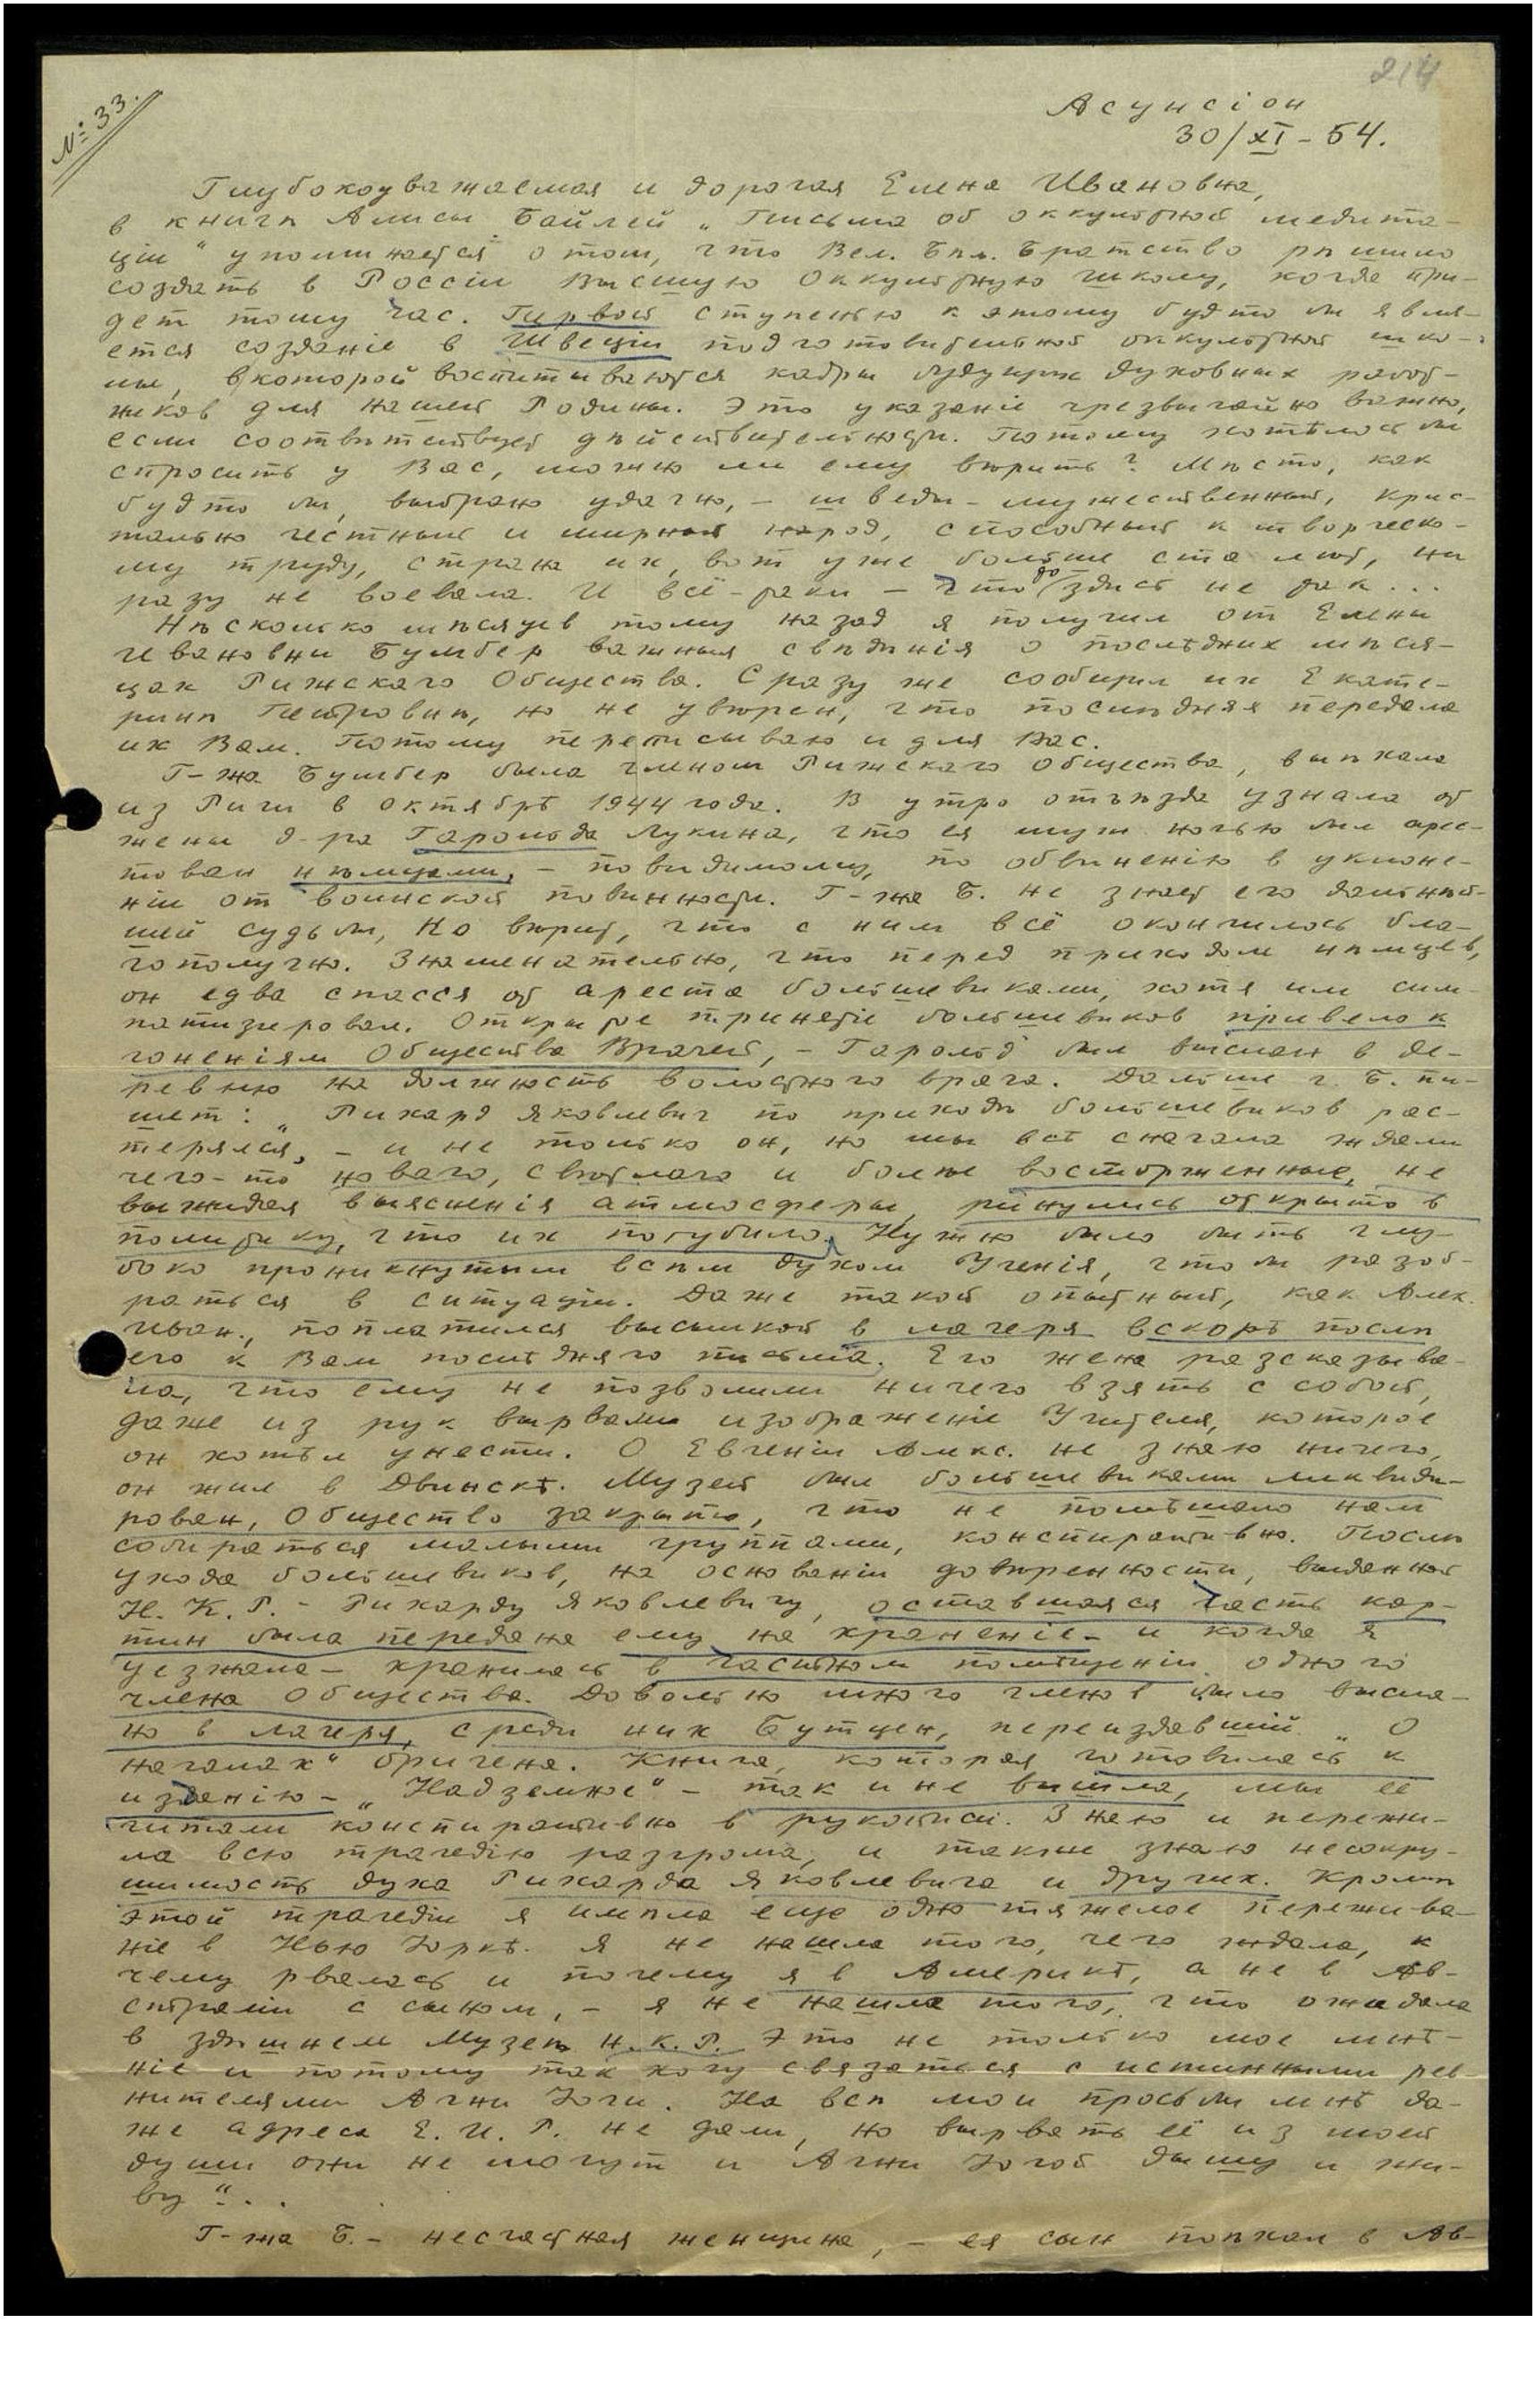 214
№ 33.
Асунсiон
30/XI - 54.
Глубокоуважаемая и дорогая Елена Ивановна,
в книгѣ Алисы Байлей „Письма об оккультной медита-
цiи“ упоминается о том, что Вел. Бѣл. Братство рѣшило
создать в Россiи Высшую Оккультную школу, когда при-
дет тому час. Первой ступенью к этому будто бы явля-
ется созданiе в Швецiи подготовительной оккультной шко-
лы, в которой воспитываются кадры будущих духовных работ-
ников для нашей Родины. Это указанiе чрезвычайно важно,
если соотвѣтствует дѣйствительности. Потому хотѣлось бы
спросить у Вас, можно ли ему вѣрить? Мѣсто, как
будто бы, выбрано удачно, - шведы - мужественный, крис-
тально честный и мирный народ, способный к творческо-
му труду, страна их, вот уже больше ста лѣт, ни
разу не воевала. И всё-таки - что то здѣсь не так...
Нѣсколько мѣсяцев тому назад я получил от Елены
Ивановны Бумбер важныя свѣдѣнiя о послѣдних мѣся-
цах Рижскаго Общества. Сразу же сообщил их Екате-
ринѣ Петровнѣ, но не увѣрен, что послѣдняя передала
их Вам. Потому переписываю и для Вас.
Г-жа Бумбер была членом Рижскаго Общества, выѣхала
из Риги в октябрѣ 1944 года. В утро отъѣзда узнала от
жены д-ра Гарольда Лукина, что ея муж ночью был арес-
тован нѣмцами, - повидимому, по обвиненiю в уклоне-
нiи от воинской повинности. Г-жа Б. не знает его дальнѣй-
шей судьбы, но вѣрит, что с ним всё окончилось бла-
гополучно. Знаменательно, что перед приходом нѣмцев,
он едва спасся от ареста большевиками, хотя им сим-
патизировал. Открытое принятiе большевиков привело к
гоненiям Общества Врачей, - Гарольд был выслан в де-
ревню на должность волостного врача. Дальше г. Б. пи-
шет: „Рихард Яковлевич по приходѣ большевиков рас-
терялся, - и не только он, но мы всѣ сначала ждали
чего-то новаго, свѣтлаго и болѣе восторженные, не
выжидая выясненiя атмосферы, ринулись открыто в
политику, что их погубило. Нужно было быть глу-
боко проникнутым всѣм духом Ученiя, чтобы разоб-
раться в ситуацiи. Даже такой опытный, как Алек.
Иван., поплатился высылкой в лагеря вскорѣ послѣ
его к Вам послѣдняго письма. Его жена разсказыва-
ла, что ему не позволили ничего взять с собой,
даже из рук вырвали изображенiе Учителя, которое
он хотѣл унести. О Евгенiи Алекс. не знаю ничего,
он жил в Двинскѣ. Музей был большевиками ликвиди-
рован, Общество закрыто, что не помѣшало нам
собираться малыми группами, конспиративно. Послѣ
ухода большевиков, на основанiи довѣренности, выданной
Н. К. Р. - Рихарду Яковлевичу, оставшаяся часть кар-
тин была передана ему на храненiе - и когда я
уезжала - хранилась в частном помѣщенiи одного
члена Общества. Довольно много членов было высла-
но в лагеря, среди них Бутцен, переиздавшiй „О
началах“ Оригена. Книга, которая готовилась к
изданiю - „Надземное“ - так и не вышла, мы её
читали конспиративно в рукописи. Знаю и пережи-
ла всю трагедiю разгрома, и также знаю несокру-
шимость духа Рихарда Яковлевича и других. Кромѣ
этой трагедiи я имѣла еще одно тяжелое пережива-
нiе в Нью Иоркѣ. Я не нашла того, чего ждала, к
чему рвалась и почему я в Америкѣ, а не в Ав-
стралiи с сыном, - я не нашла того, что ожидала
в здѣшнем Музеѣ Н. К. Р. Это не только мое мнѣ-
нiе и потому так хочу связаться с истинными рев-
нителями Агни Иоги. На всѣ мои просьбы мнѣ да-
же адреса Е. И. Р. не дали, но вырвать её из моей
души они не могут и Агни Иогой дышу и жи-
ву“...
Г-жа Б. - несчастная женщина, - ея сын поѣхал в Ав-